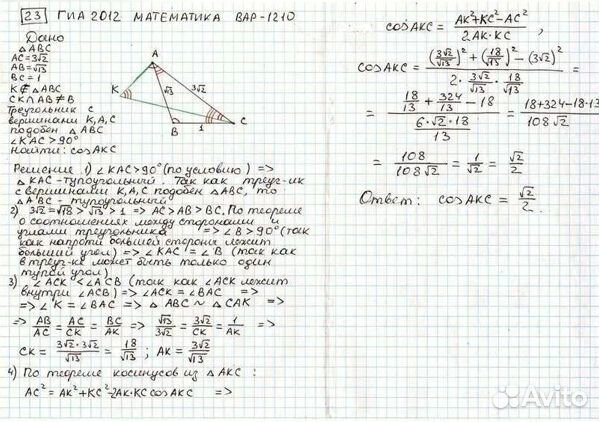 23 ГИА 2012 МАТЕМАТИКА ВАР-1210
Дано
△ABC
AC=3√2
AB=√13
BC=1
K∉△ABC
CK∩AB≠B
Треугольник с
вершинами K,A,C
подобен △ABC
∠KAC>90°
Найти: cosAKC
A
K
B
C
√13
3√2
1
Решение 1) ∠KAC>90° (по условию) =>
△KAC-тупоугольный. Так как треуг-ик
с вершинами K,A,C подобен △ABC, то
△ABC - тупоугольный
2) 3√2=√18>√13>1 => AC>AB>BC. По теореме
о соотношениях между сторонами и
углами треугольника => ∠B>90° (так
как напротив большей стороны лежит
больший угол) => ∠KAC=∠B (так как
в треуг-ке может быть только один
тупой угол)
3) ∠ACK<∠ACB (так как ∠ACK лежит
внутри ∠ACB) => ∠ACK=∠BAC =>
=> ∠K=∠BAC => △ABC~△CAK =>
=> AB/AC = AC/CK = BC/AK => √13/3√2 = 3√2/CK = 1/AK =>
CK = 3√2·3√2/√13 = 18/√13 ; AK = 3√2/√13
4) По теореме косинусов из △AKC :
AC²=AK²+KC²-2AK·KC cosAKC =>
cosAKC = AK²+KC²-AC²/2AK·KC ,
cosAKC = (3√2/√13)²+(18/√13)²-(3√2)²/2·3√2/√13·18/√13 =
= 18/13+324/13-18/6√2·18/13 = 18+324-18·13/108√2
= 108/108√2 = 1/√2 = √2/2
Ответ: cosAKC = √2/2.
Avito